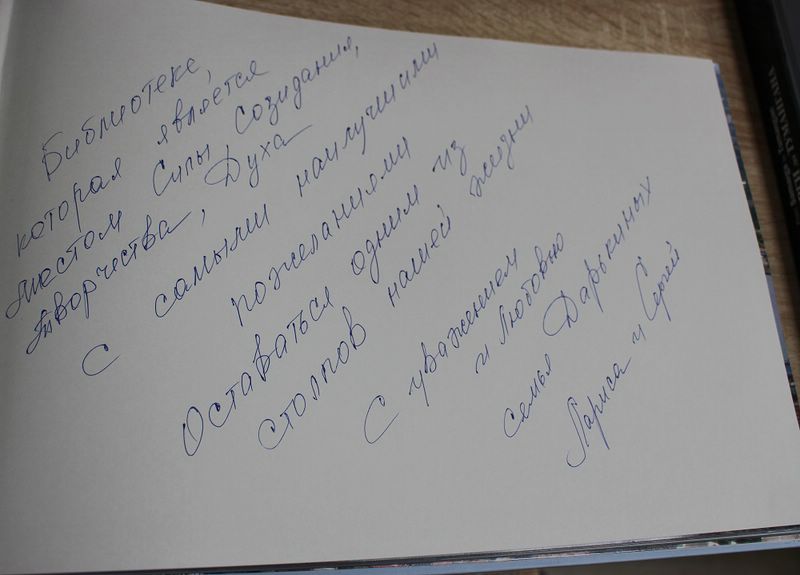 Библиотеке,
которая является
мостом Силы, созидания,
творчества, Духа
С самыми наилучшими
пожеланиями
Оставаться одним из
столпов нашей жизни
С уважением
и Любовью
семья Дарькиных
Лариса и Сергей